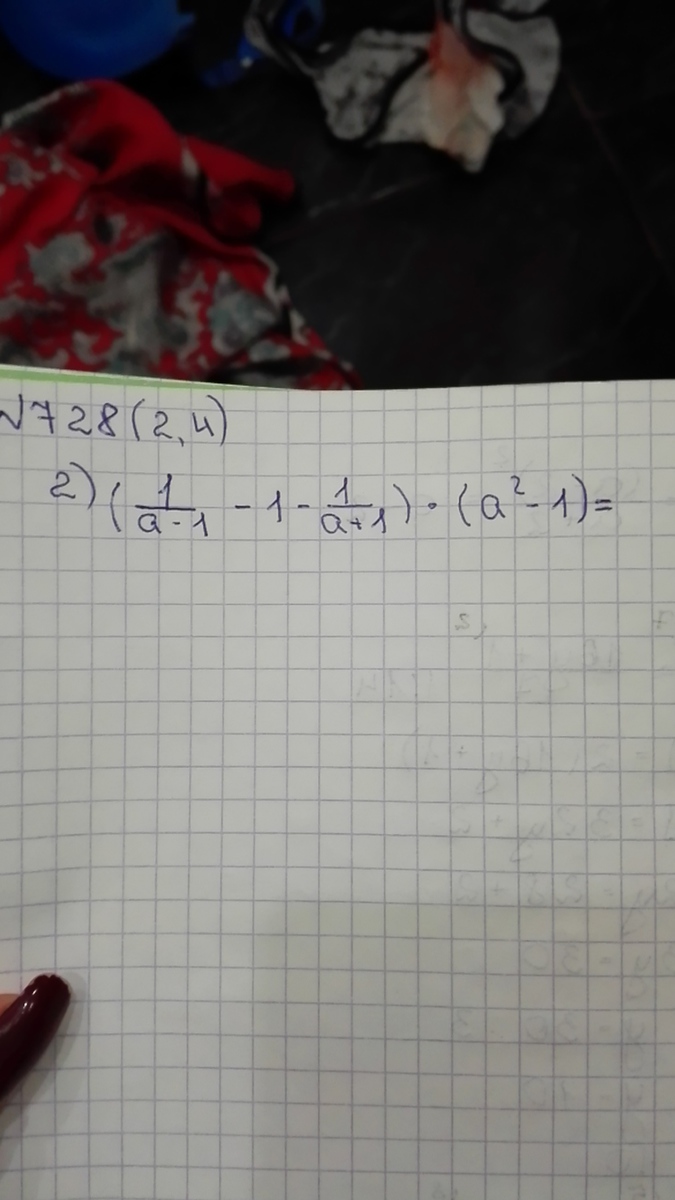 №728(2,4)
2) (1/(a-1) - 1 - 1/(a+1)) · (a²-1)=